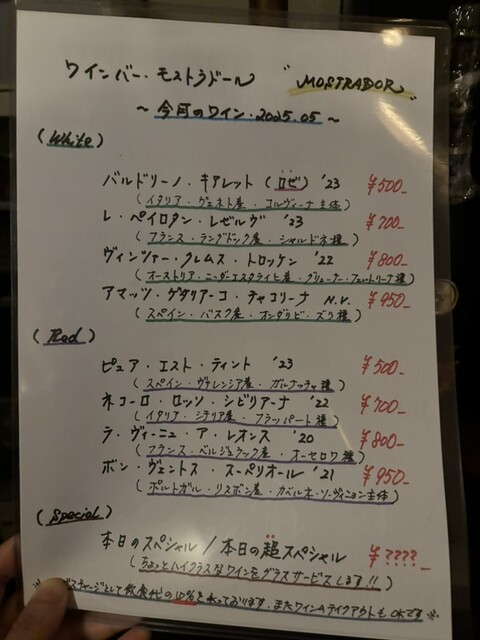 ワインバー・モストラドール "MOSTRADOR"
～今月のワイン・2025.05～
(White)
バルドリーノ・キアレット(ロゼ)'23 ¥500-
(イタリア・ヴェネト産・コルヴィーナ主体)
レ・ペイロタン・レゼルヴ '23 ¥700-
(フランス・ラングドック産・シャルドネ種)
ヴィンツァー・クレムス・トロッケン '22 ¥800-
(オーストリア・ニーダーエスタライヒ産・グリューナー・フェルトリーナ種)
アマッツ・ゲタリアーコ・チャコリーナ N.V. ¥950-
(スペイン・バスク産・オンダリビ・ズリ種)
(Red)
ピュア・エスト・ティント '23 ¥500-
(スペイン・ヴァレンシア産・ガルナッチャ種)
ネコーロ・ロッソ・シビリアーナ '22 ¥700-
(イタリア・シチリア産・フラッパート種)
ラ・ヴィーニュ・ア・レオンス '20 ¥800-
(フランス・ベルジュラック産・オーセロワ種)
ボン・ヴェントス・スーペリオール '21 ¥950-
(ポルトガル・リスボン産・カベルネ・ソーヴィニョン主体)
(Special)
本日のスペシャル/本日の超スペシャル ¥????-
(ちょっとハイクラスなワインをグラスサービスします!!)
ビスチャージとして飲食代の10%を承っております。またワインのテイクアウトもOKです※